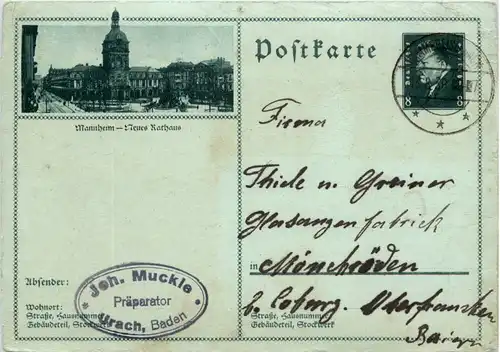 Postkarte
Mannheim – Neues Rathaus
8 8
Firma
Thiele u. Greiner
Glasaugenfabrick
in Mönchröden
b. Coburg. Oberfranken
Straße, Hausnummer
Gebäudeteil, Stockwerk
Baiern
Absender:
Wohnort:
Straße, Hausnummer
Gebäudeteil, Stockwerk
Joh. Muckle
Präparator
Urach, Baden